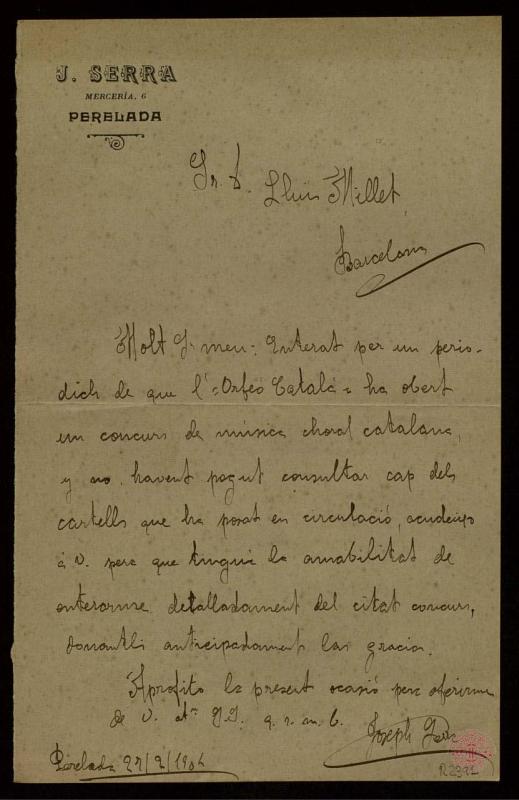 J. SERRA
MERCERÍA, 6
PERELADA
Sr. D. Lluis Millet
Barcelona
Molt Sr meu: Enterat per un perio-
dich de que l'"Orfeó Catalá" ha obert
un concurs de música choral catalana,
y no havent pogut consultar cap dels
cartells que ha posat en circulació, acudeixo
á V. pera que tingui la amabilitat de
enterarme detalladament del citat concurs,
donantli anticipadament las gracias.
Aprofito la present ocasió pera oferirme
de V. atm S.S. q. s. m. b.
Joseph Serra
Perelada 27/2/1904
R2391